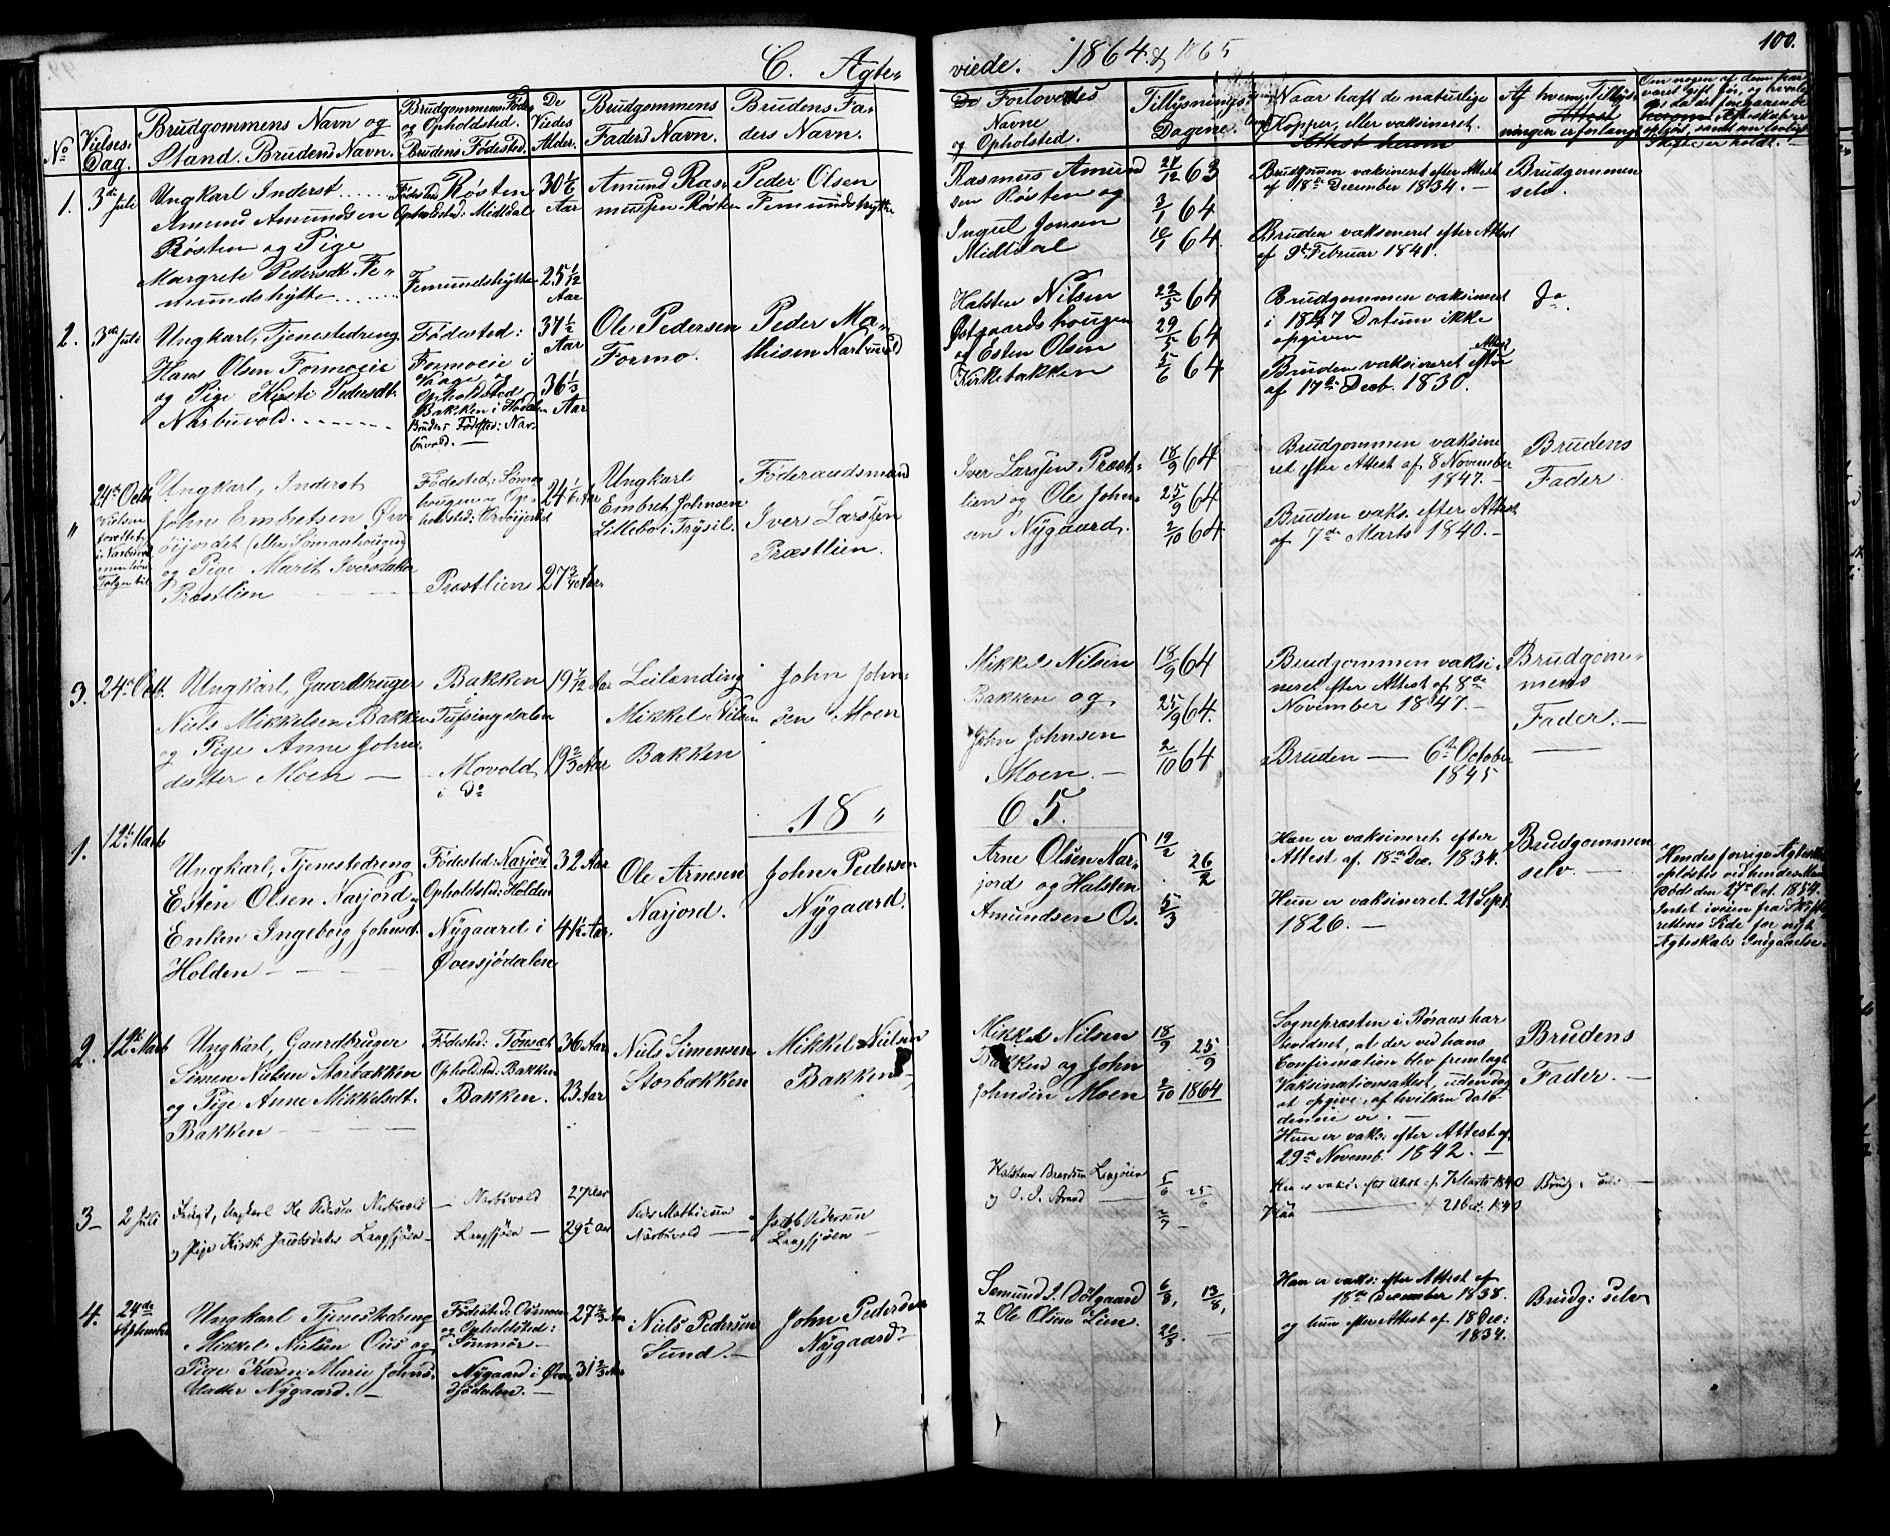 C. Agte-
viede. 1864. & 1865
100.
No
Vielses-
Dag.
Brudgommens Navn og
Stand. Brudens Navn.
Brudgommens Føde-
og Opholdsted.
Brudens Fødested.
De
Viedes
Alder.
Brudgommens
Faders Navn.
Brudens Fa-
ders Navn.
De Forlovedes
Navne
og Opholsted.
Tillysnings-
Dagene.
Naar haft de naturlige
Kopper, eller vaksineret.
Af hvem Tillys-
ningen er forlangt
Om nogen af dem har
været gift før, og hvorle-
des da det foregaaende
Ægteskab er
opløst, samt om lovligt
Skifte er holdt.
1.
3die Juli
Ungkarl Inderst
Amund Amundsen
Røsten og Pige
Margrete Pedersdt. Fe-
mundshytte
Fødested Røsten
Opholdsted: Midtdal
Femundshytte
30 1/6
Aar
25 1/12
Aar
Amund Ras-
mussen Røsten
Peder Olsen
Femundshytte
Rasmus Amund
sen Røsten og
Ingul Jonsen
Midtdal
27/12 63
3/1 64
10/1 64
Brudgommen vaksineret efter Attest
af 18de December 1834.
Bruden vaksineret efter Attest
af 9de Februar 1841.
Brudgommen
selv.
2.
3die Juli
Ungkarl, Tjenestedreng
Hans Olsen Formoeie
og Pige Kirsti Pedersdt.
Narbuvold
Fødested:
Formoeie i
Vaage og
Opholdsted
Bakken i Hodalen
Brudens Fødested: Nar-
buvold.
37 1/2
Aar
36 1/3
Aar
Ole Pedersen
Formo.
Peder Ma-
thisen Narbuvold
Halsten Nilsen
Østgaardshougen
og Esten Olsen
Kirkebakken
22/5 64
29/5 64
5/6 64
Brudgommen vaksineret
i 1847 Datum ikke
opgiven
Bruden vaksineret efter Attest
af 17de Decb. 1830.
Do
"
24de Octb.
Vielsen
forettet
i Narbuvold
Ungkarl, Inderst
John Embretsen Øvre
øiejordet (eller Sømanhougen)
og Pige Marit Iversdatter
Præstlien
Fødested: Søman-
hougen og Op-
holdsted: Ørvoijordet
Præstlien
24 1/6 Aar
27 3/4 Aar
Ungkarl
Embret Johnsen
Lillebo i Trysil.
Føderaadsmand
Iver Larssen
Præstlien.
Iver Larssen Præst-
lien og Ole John-
sen Nygaard.
18/9 64
25/9 64
2/10 64
Brudgommen vaksine
ret efter Attest af 8 November
1847.
Bruden vaks. efter Attest
af 7de Marts 1840.
Brudens
Fader.
3.
24de Octb.
Ungkarl, Gaardbruger
Niels Mikkelsen Bakken
og Pige Anne Johns
datter Moen
Bakken
i
Tufsingdalen
Movold
i Do
19 7/12 Aar
19 2/3 Aar
Leilending
Mikkel Nilsen
Bakken
John John-
sen Moen
Mikkel Nilsen
Bakken og
John Johnsen
Moen.
18/9 64
25/9 64.
2/10 64
Brudgommen vaksi-
neret efter Attest af 8de
November 1847.
Bruden — 6te October
1845
Brudgom-
mens
Fader.
18"
65.
1.
12te Marts
Ungkarl, Tjenestedreng
Esten Olsen Narjord og
Enken Ingeborg Johnsdt
Holden
Fødested: Narjord
Opholdsted: Holden
Nygaard i
Øversjødalen
32 Aar
41 1/2 Aar
Ole Arnesen
Narjord.
John Pedersen
Nygaard.
Arne Olsen Nar-
jord og Halsten
Amundsen Os.
19/2
26/2
5/3
Han er vaksineret efter
Attest af 18de Dec. 1834.
Hun er vaksineret 21 Sept.
1826.
Brudgommen
selv.
Hendes forrige Ægteskab
opløstes ved hendes Mands
Død den 27de Oct. 1857.
Intet iveien fra Skifte-
rettens Side for nyt
Ægteskabs Indgaaelse.
2.
12te Marts
Ungkarl, Gaardbruger
Simen Nielsen Storbækken
og Pige Anne Mikkelsdt.
Bakken
Fødested: Tønsæt
Opholdsted: Bakken
Bakken.
36 Aar
23 Aar
Niels Simensen
Storbækken
Mikkel Nielsen
Bakken
Mikkel Nilsen
Bakken og John
Johnsen Moen
18/9
25/9
2/10 1864
Sognepræsten i Røraas har
bevidnet, at der ved hans
Confirmation blev fremlagt
Vaksinationsattest, uden dog
at opgive, af hvilken dato
denne er.
Hun er vaks: efter Attest af
29de Novemb. 1842.
Brudens
Fader.
3
2 Juli
Ungkarl Ole Pedersen Narbuvold
og Pige Kirsti Jacobsdatter Langsjøen
Narbuvold
Langsjøen
27 Aar
29 1/2 Aar
Peder Mathiesen
Narbuvold
Jacob Pedersen
Langsjøen
Halsten Baardsen Langsjøen
og O. J. Strand
5/6
25/6
2/7
Han er vaks. efter Attest af 7 Marts 1840
Hun — 21 Dec. 1840
Brudg. selv
4.
24de
September
Ungkarl Tjenestedreng
Mikkel Nielsen Ous og
Pige Karen Marie Johns-
datter Nygaard.
Fødested: Osmoen
og Opholdsted:
Nygaard i Øver-
sjødalen.
27 2/3 Aar
31 2/3 Aar
Niels Pedersen
Sund.
John Pedersen
Nygaard.
Semund J. Dølgaard
& Ole Olsen Lien.
6/8,
13/8,
20/8.
Han er vaks: efter Attest af
18de December 1838.
og hun efter Attest af 18 Dec:
1834.
Brudg: selv